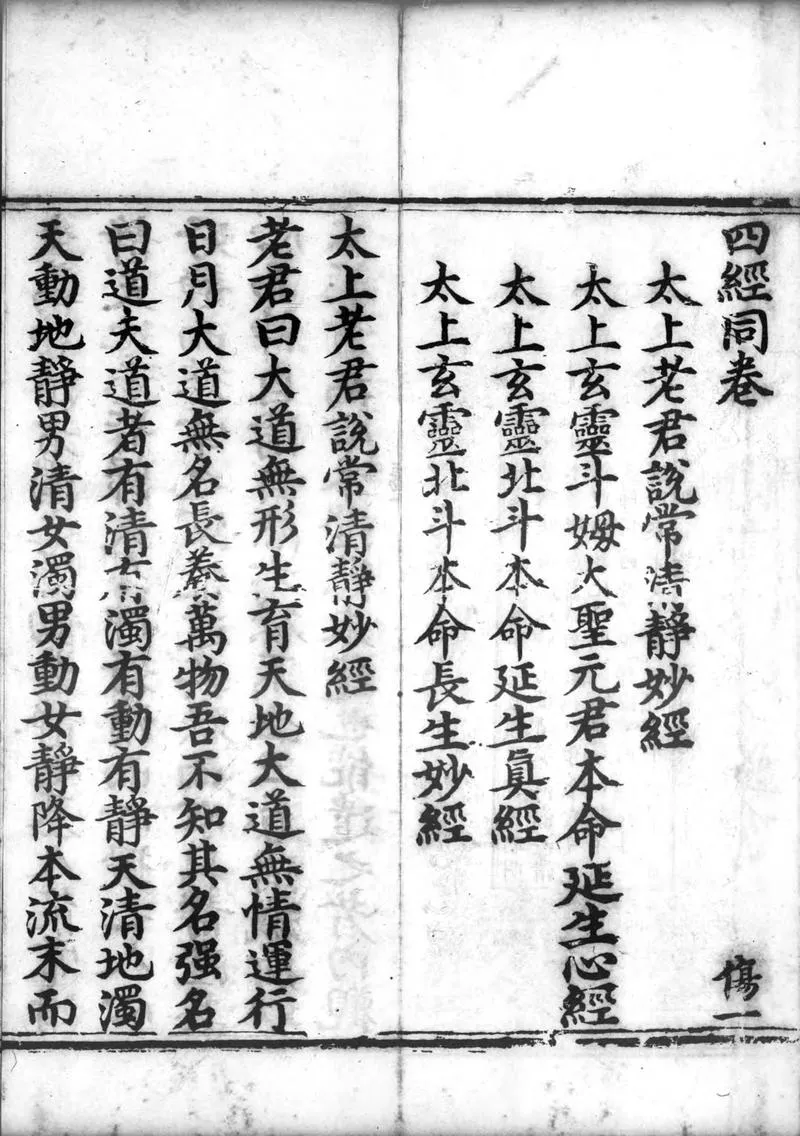 四經同卷 傷一
太上老君說常清靜妙經
太上玄靈斗姆大聖元君本命延生心經
太上玄靈北斗本命延生眞經
太上玄靈北斗本命長生妙經
太上老君說常清靜妙經
老君曰大道無形生育天地大道無情運行
日月大道無名長養萬物吾不知其名强名
曰道夫道者有清有濁有動有靜天清地濁
天動地靜男清女濁男動女靜降本流末而